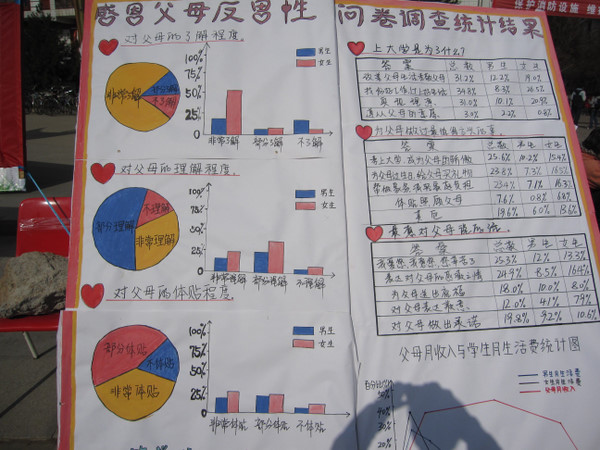 保护消防设施 维
感恩父母反男性 问卷调查统计结果
对父母的了解程度.
非常了解
部分了解
不了解
100%
75%
50%
25%
0
男生
女生
非常了解 部分了解 不了解
对父母的理解程度.
不理解
部分理解
非常理解
100%
75%
50%
25%
0
男生
女生
非常理解 部分理解 不理解
对父母的体贴程度.
部分体贴
不体贴
非常体贴
100%
75%
50%
25%
0
男生
女生
非常体贴 部分体贴 不体贴
上大学是为了什么?
答案 总数 男生 女生
31.2% 12.2% 19.0%
34.8% 8.3% 26.5%
31.0% 10.1% 20.9%
3.0% 2.2% 0.8%
答案 总数 男生 女生
考上大学,成为父母的骄傲 25.6% 10.2% 15.4%
为父母过生日,给父母买礼物 23.8% 7.3% 16.5%
23.4% 7.1% 16.3%
体贴照顾父母 7.6% 0.8% 6.8%
其它 19.6% 6.0% 13.6%
最想对父母说的话.
答案 总数 男生 女生
25.3% 12% 13.3%
表达对父母的感激之情 24.9% 8.5% 16.4%
为父母送出祝福 18.0% 10.0% 8.0%
对父母表达歉意. 12.0% 4.1% 7.9%
对父母做出承诺 19.8% 9.2% 10.6%
父母月收入与学生月生活费统计图
男生月生活费
女生月生活费
父母月收入
百分比
50%
40%
30%
20%